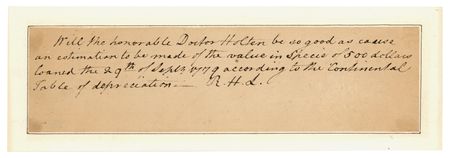 Will the honorable Doctor Holten be so good as cause
an estimation to be made of the value in Specie of 500 dollars
loaned the 29th of Septr. 1779 according to the Continental
Table of depreciation.— R. H. L.